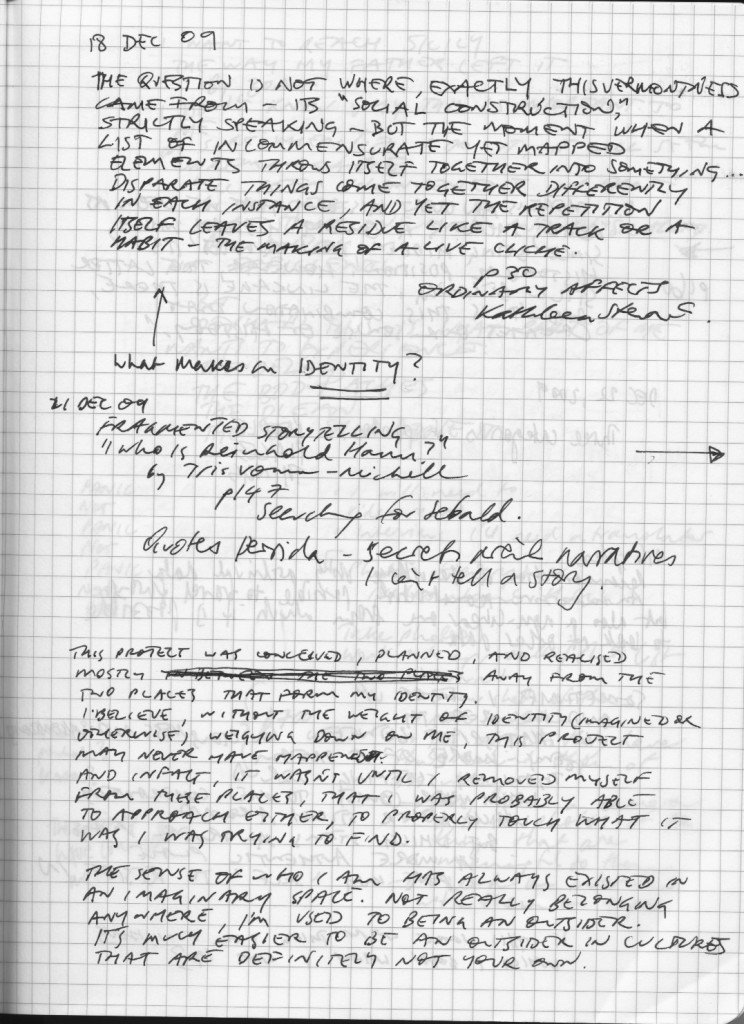 18 DEC 09
THE QUESTION IS NOT WHERE, EXACTLY THIS VERMONTNESS
CAME FROM - ITS "SOCIAL CONSTRUCTION,"
STRICTLY SPEAKING - BUT THE MOMENT WHEN A
LIST OF INCOMMENSURATE YET MAPPED
ELEMENTS THROWS ITSELF TOGETHER INTO SOMETHING...
DISPARATE THINGS COME TOGETHER DIFFERENTLY
IN EACH INSTANCE, AND YET THE REPETITION
ITSELF LEAVES A RESIDUE LIKE A TRACK OR A
HABIT - THE MAKING OF A LIVE CLICHE.
p30
ORDINARY AFFECTS
Kathleen
What makes an IDENTITY?
21 DEC 09
FRAGMENTED STORYTELLING
"Who is Reinhold Hahn?"
by Tris Vonna-Michell
p147
Searching for Sebald.
Quotes Derrida - secrets narratives
I can't tell a story.
THIS PROJECT WAS CONCEIVED, PLANNED, AND REALISED
MOSTLY IN BETWEEN THE TWO PLACES AWAY FROM THE
TWO PLACES THAT FORM MY IDENTITY.
I BELIEVE, WITHOUT THE WEIGHT OF IDENTITY (IMAGINED OR
OTHERWISE) WEIGHING DOWN ON ME, THIS PROJECT
MAY NEVER HAVE HAPPENED.
AND INFACT, IT WASN'T UNTIL I REMOVED MYSELF
FROM THESE PLACES, THAT I WAS PROBABLY ABLE
TO APPROACH EITHER, TO PROPERLY TOUCH WHAT IT
WAS I WAS TRYING TO FIND.
THE SENSE OF WHO I AM HAS ALWAYS EXISTED IN
AN IMAGINARY SPACE. NOT REALLY BELONGING
ANYWHERE, I'M USED TO BEING AN OUTSIDER.
IT'S MUCH EASIER TO BE AN OUTSIDER IN CULTURES
THAT ARE DEFINITELY NOT YOUR OWN.